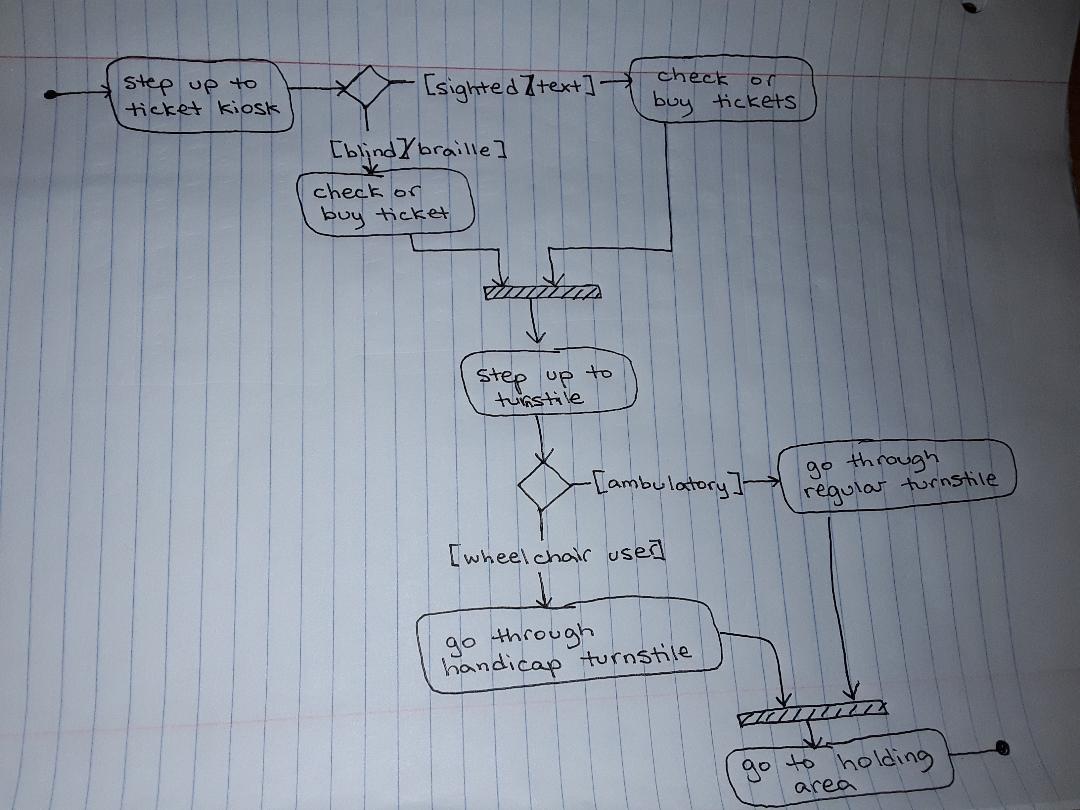 step up to
ticket kiosk
[sighted][text]
check or
buy tickets
[blind][braille]
check or
buy ticket
step up to
turnstile
[ambulatory]
go through
regular turnstile
[wheelchair user]
go through
handicap turnstile
go to holding
area